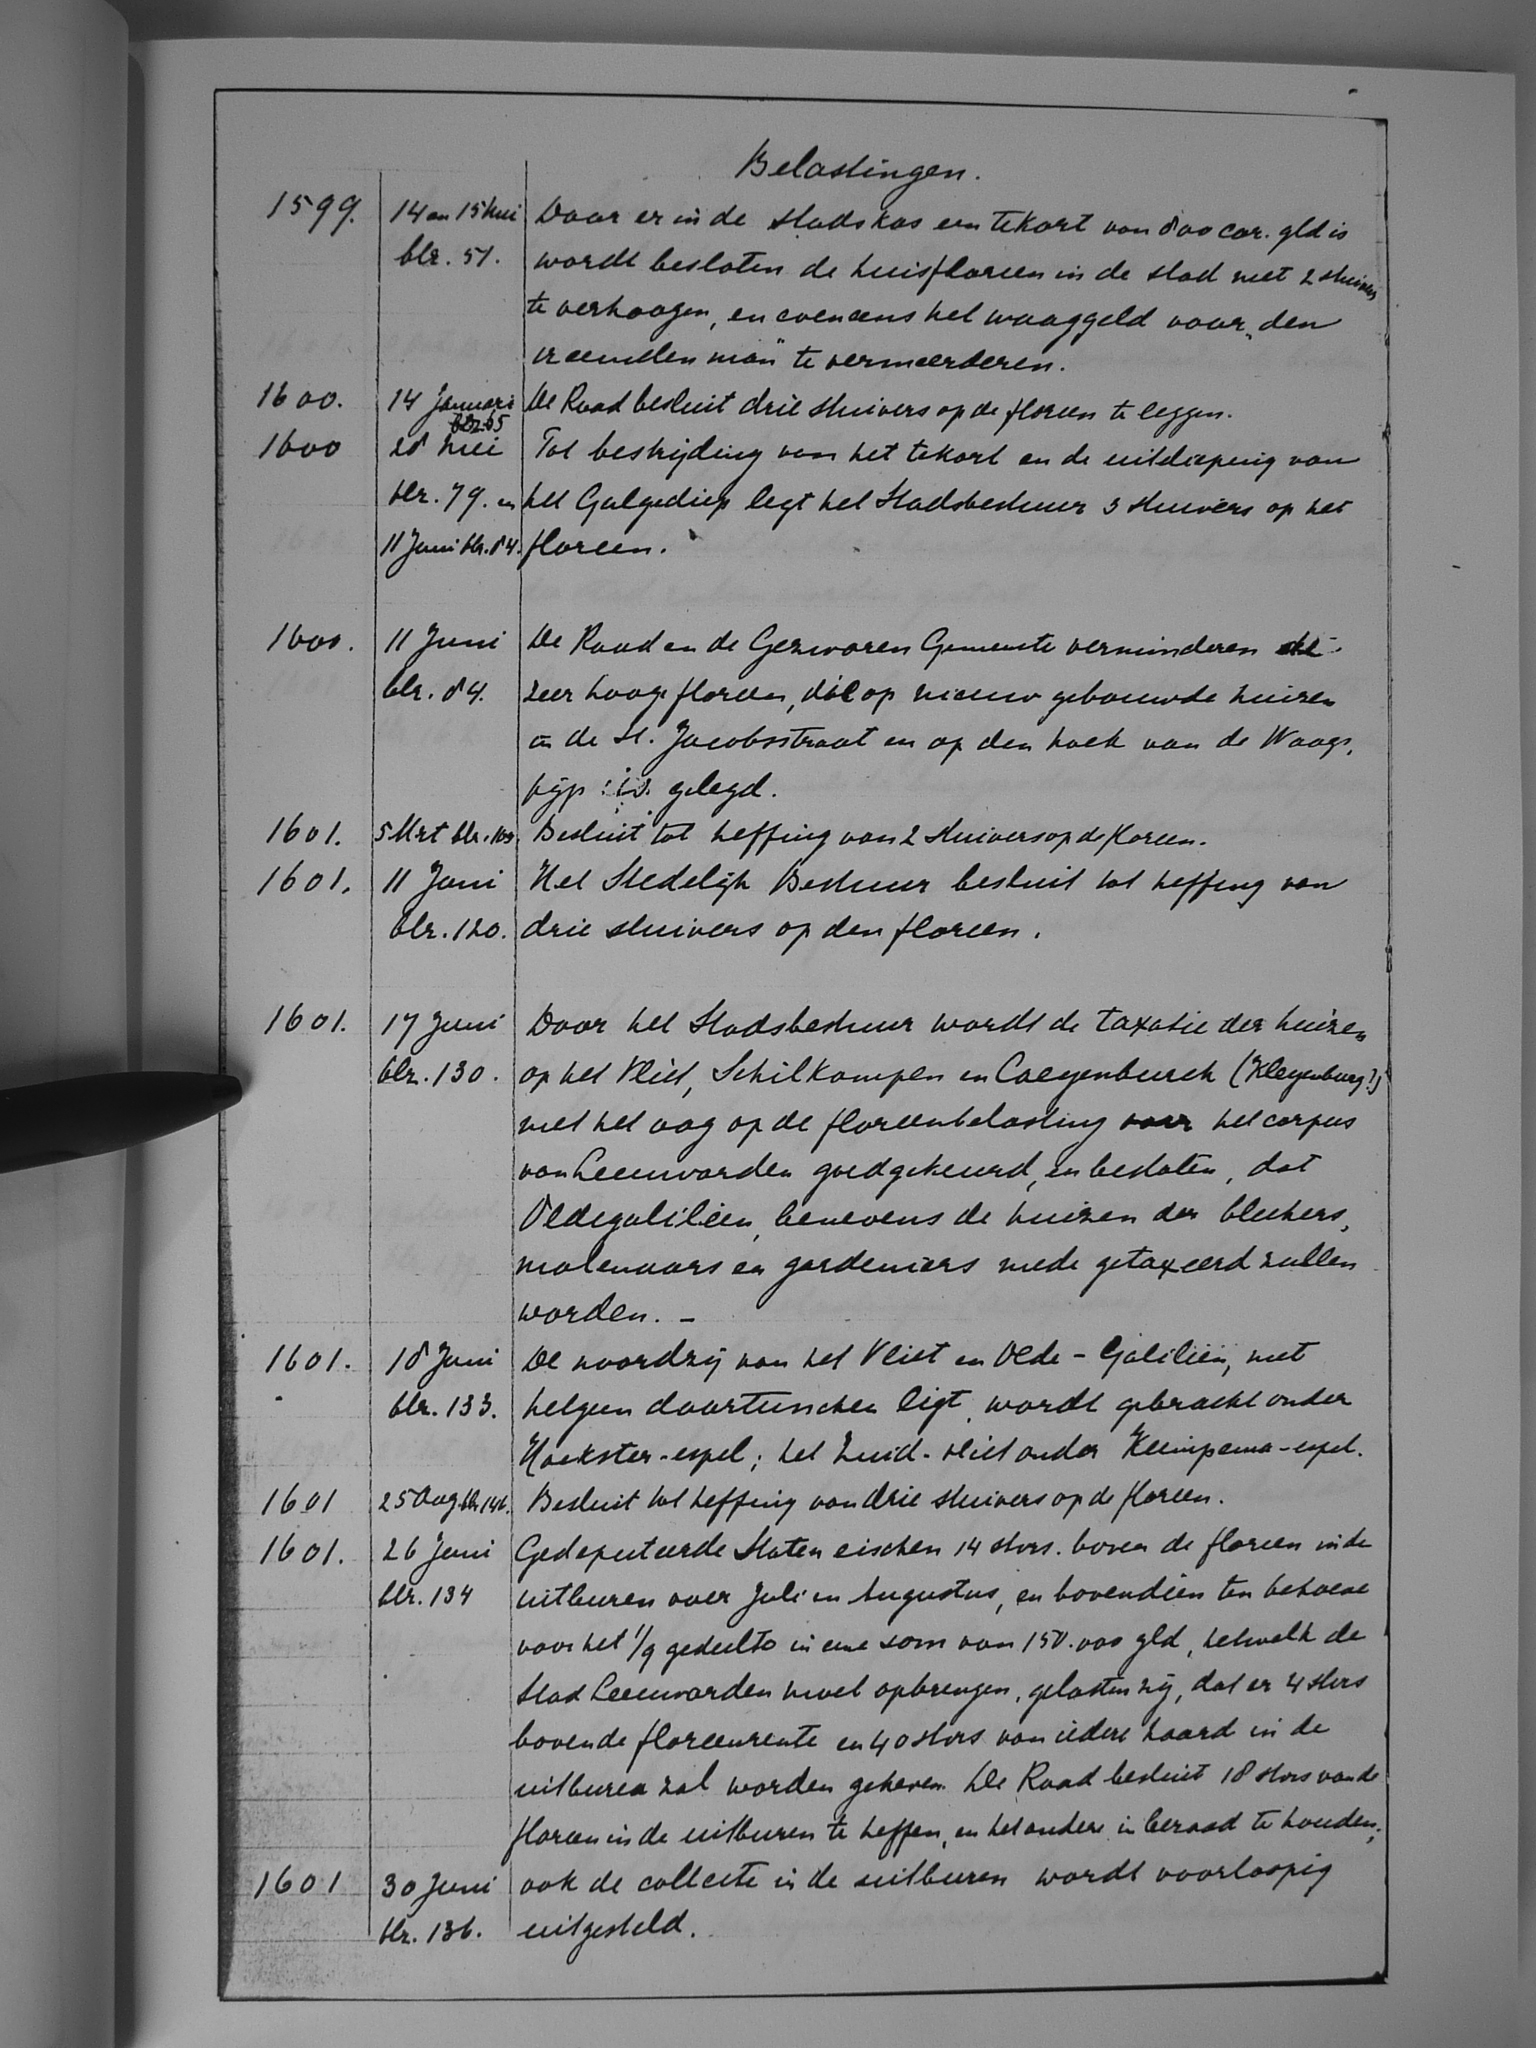 Belastingen.
1599. 14 en 15 Mei Daar er in de stadskas een tekort van 800 car. gld is
blz. 51. wordt besloten de huisfloreen in de stad met 2 stuivers
te verhoogen, en eveneens het waaggeld voor „den
vreemden man" te vermeerderen.
1600. 14 Januari De Raad besluit drie stuivers op de floreen te leggen.
blz. 65
1600 28 Mei Tot bestrijding van het tekort en de uitdieping van
blz. 79. en het Galgediep legt het Stadsbestuur 3 stuivers op het
11 Juni blz. 84. floreen.
1600. 11 Juni De Raad en de Gezworen Gemeente verminderen de
blz. 84. zeer hooge floreen, die op nieuw gebouwde huizen
in de St. Jacobsstraat en op den hoek van de Waags,
pijp is gelegd.
1601. 5 Mrt blz. 103. Besluit tot heffing van 2 stuivers op de floreen.
1601. 11 Juni Het Stedelijk Bestuur besluit tot heffing van
blz. 120. drie stuivers op den floreen.
1601. 17 Juni Door het Stadsbestuur wordt de taxatie der huizen
blz. 130. op het Vliet, Schilkampen en Caegenburch (Kleyenburg?)
met het oog op de floreenbelasting voor het corpus
van Leeuwarden goedgekeurd, en besloten, dat
Oldegalileën, benevens de huizen der bleekers,
molenaars en gardeniers mede getaxeerd zullen
worden. –
1601. 18 Juni De noordzij van het Vliet en Olde-Galileën, met
blz. 133. hetgeen daartusschen ligt, wordt gebracht onder
Hoekster-espel; het Zuid-vliet onder Keimpema-espel.
1601 25 Aug. blz. 146. Besluit tot heffing van drie stuivers op de floreen.
1601. 26 Juni Gedeputeerde Staten eischen 14 stvrs. boven de floreen in de
blz. 134 uitburen over Juli en Augustus, en bovendien ten behoeve
voor het 1/9 gedeelte in eene som van 150.000 gld, hetwelk de
Stad Leeuwarden moet opbrengen, gelasten zij, dat er 4 stvrs
boven de floreenrente en 40 stvrs van iedere haard in de
uitburen zal worden geheven. De Raad besluit 18 stvrs van de
floreen in de uitburen te heffen, en het andere in beraad te houden;
1601 30 Juni ook de collecte in de uitburen wordt voorloopig
blz. 136. uitgesteld.